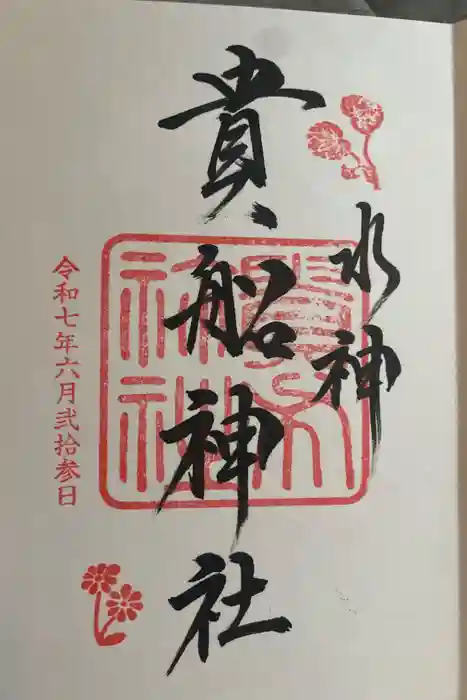 水神
貴船神社
令和七年六月弐拾参日